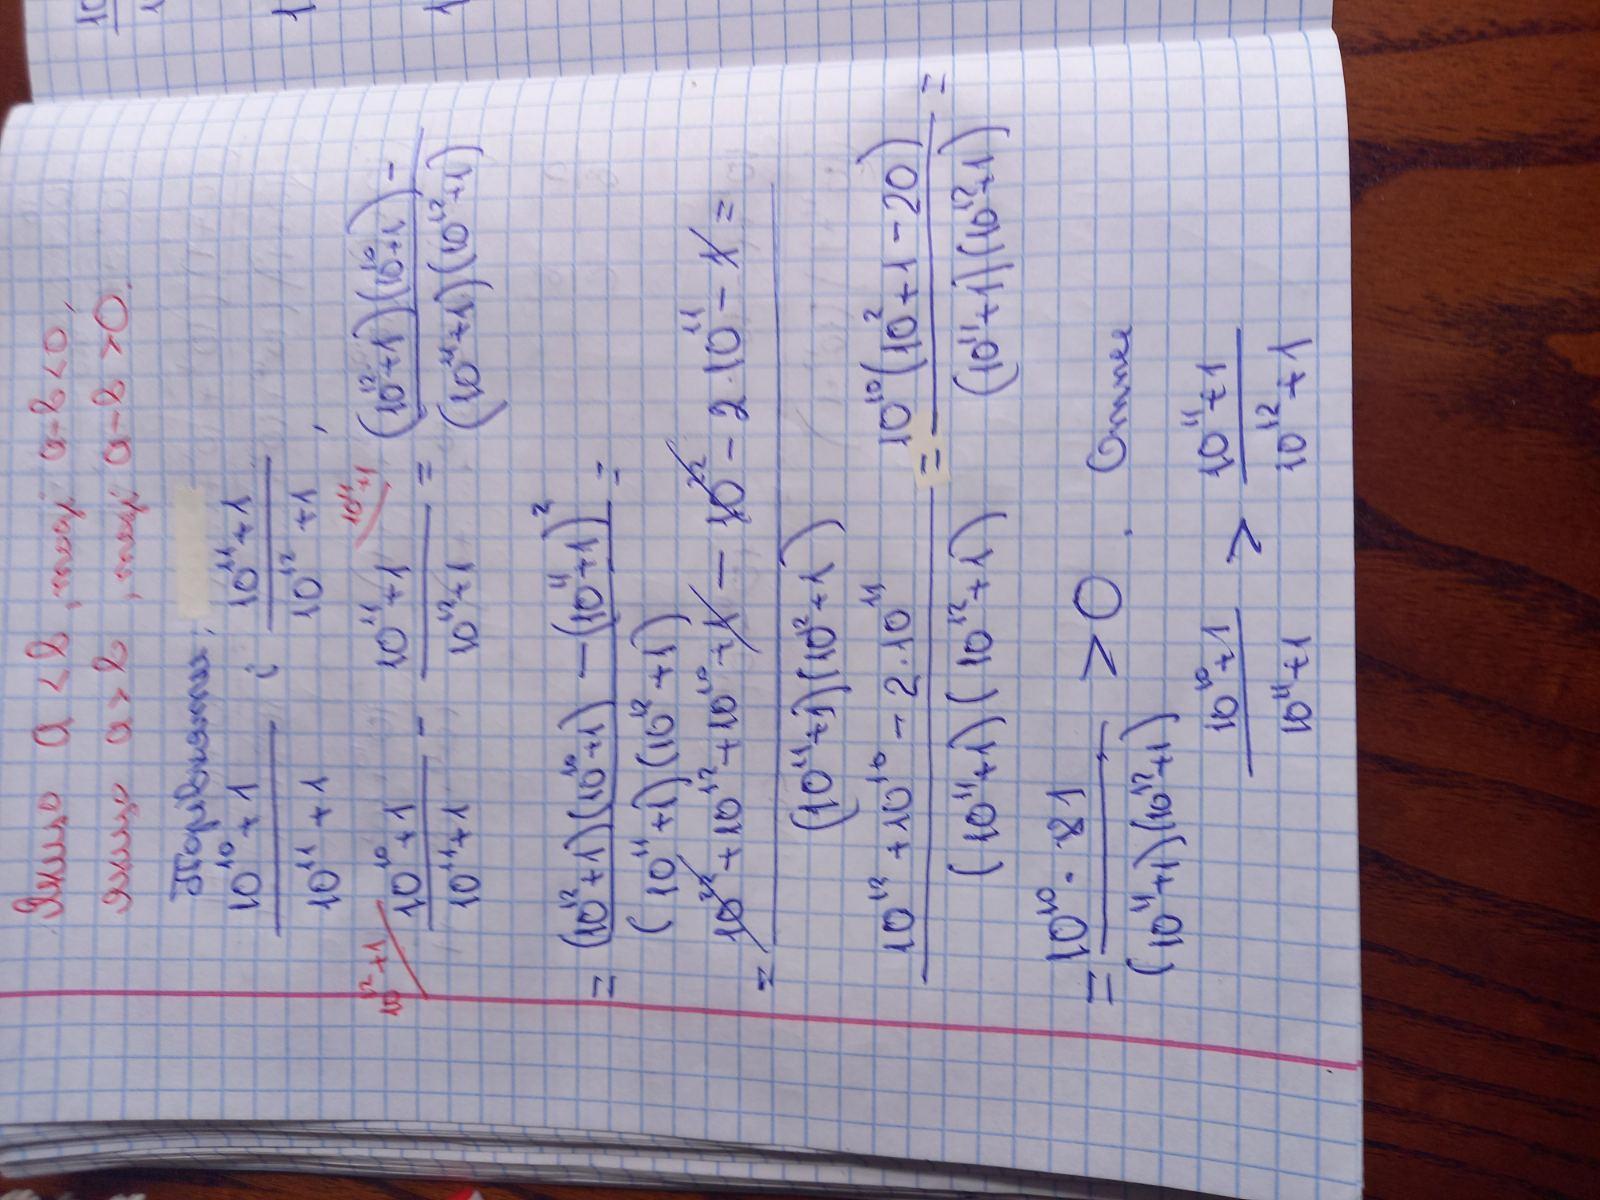 Якщо a < b, тоді a-b<0,
якщо a>b, тоді a-b>0.
Порівняти:
(10^10+1)/(10^11+1) і (10^11+1)/(10^12+1),
10^12+1 / (10^10+1)/(10^11+1) - 10^11+1 / (10^11+1)/(10^12+1) = (10^12+1)(10^10+1) - / (10^11+1)(10^12+1)
= ((10^12+1)(10^10+1) - (10^11+1)^2)/((10^11+1)(10^12+1)) =
= (10^22+10^12+10^10+1 - 10^22 - 2·10^11 - 1)/((10^11+1)(10^12+1)) =
(10^12+10^10-2·10^11)/((10^11+1)(10^12+1)) = 10^10(10^2+1-20)/((10^11+1)(10^12+1)) =
= 10^10·81/((10^11+1)(10^12+1)) >0. Отже
(10^10+1)/(10^11+1) > (10^11+1)/(10^12+1)